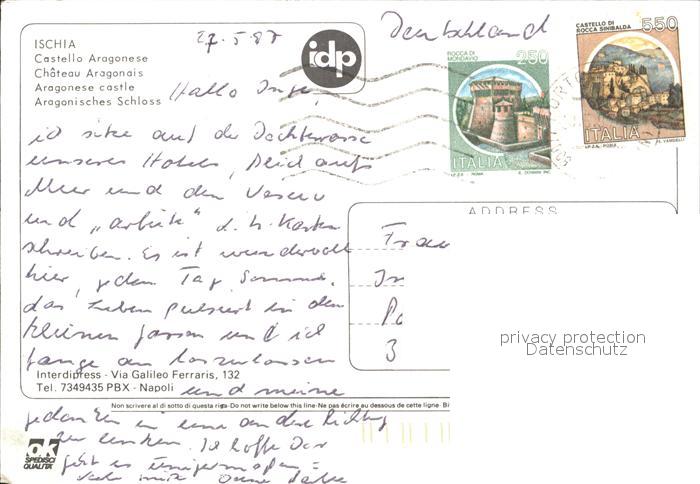 27.5.87
Deutschland
ISCHIA
Castello Aragonese
Château Aragonais
Aragonese castle
Aragonisches Schloss
idp
ROCCA DI MONDAVIO
250
ITALIA
I.P.Z.S. - ROMA
CASTELLO DI ROCCA SINIBALDA
550
ITALIA
I.P.Z.S. - ROMA
Hallo Inge,
ich sitze auf der Dachterrasse
unseres Hotels, Blick aufs
Meer und den Vesuv
und „arbeite" d.h. Karten
schreiben. Es ist wundervoll
hier, jeden Tag Sonne,
das Leben pulsiert in den
kleinen Gassen und ich
fange an loszulassen
und meine
Gedanken in eine andere Richtung
zu lenken. Ich hoffe Dir
geht es einigermaßen
ADDRESS
Frau
3
privacy protection
Datenschutz
Interdipress - Via Galileo Ferraris, 132
Tel. 7349435 PBX - Napoli
Non scrivere al di sotto di questa riga-Do not write below this line-Ne pas écrire au dessous de cette ligne-
ok
SPEDISCI QUALITA'